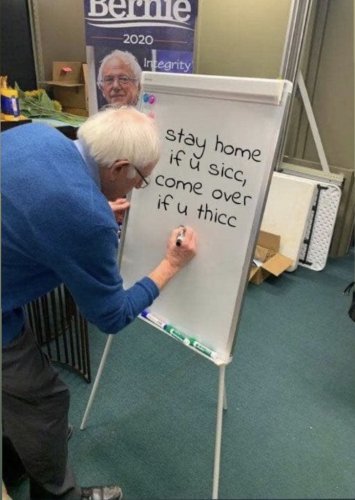 Bernie
2020
Integrity
stay home
if u sicc,
come over
if u thicc